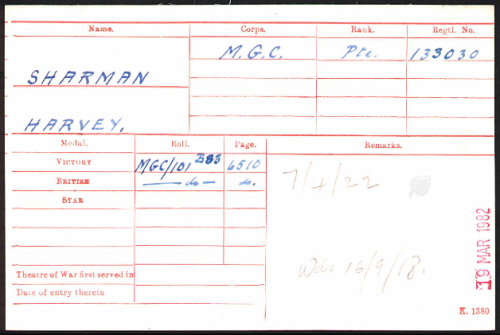 Name. Corps. Rank. Regtl. No.
M.G.C. Pte. 133030
SHARMAN
HARVEY.
Medal. Roll. Page. Remarks.
VICTORY MGC/101 B85 6510
BRITISH — do — do.
7/4/22
STAR
19 MAR 1982
Wds 16/9/18.
Theatre of War first served in
Date of entry therein
K. 1380